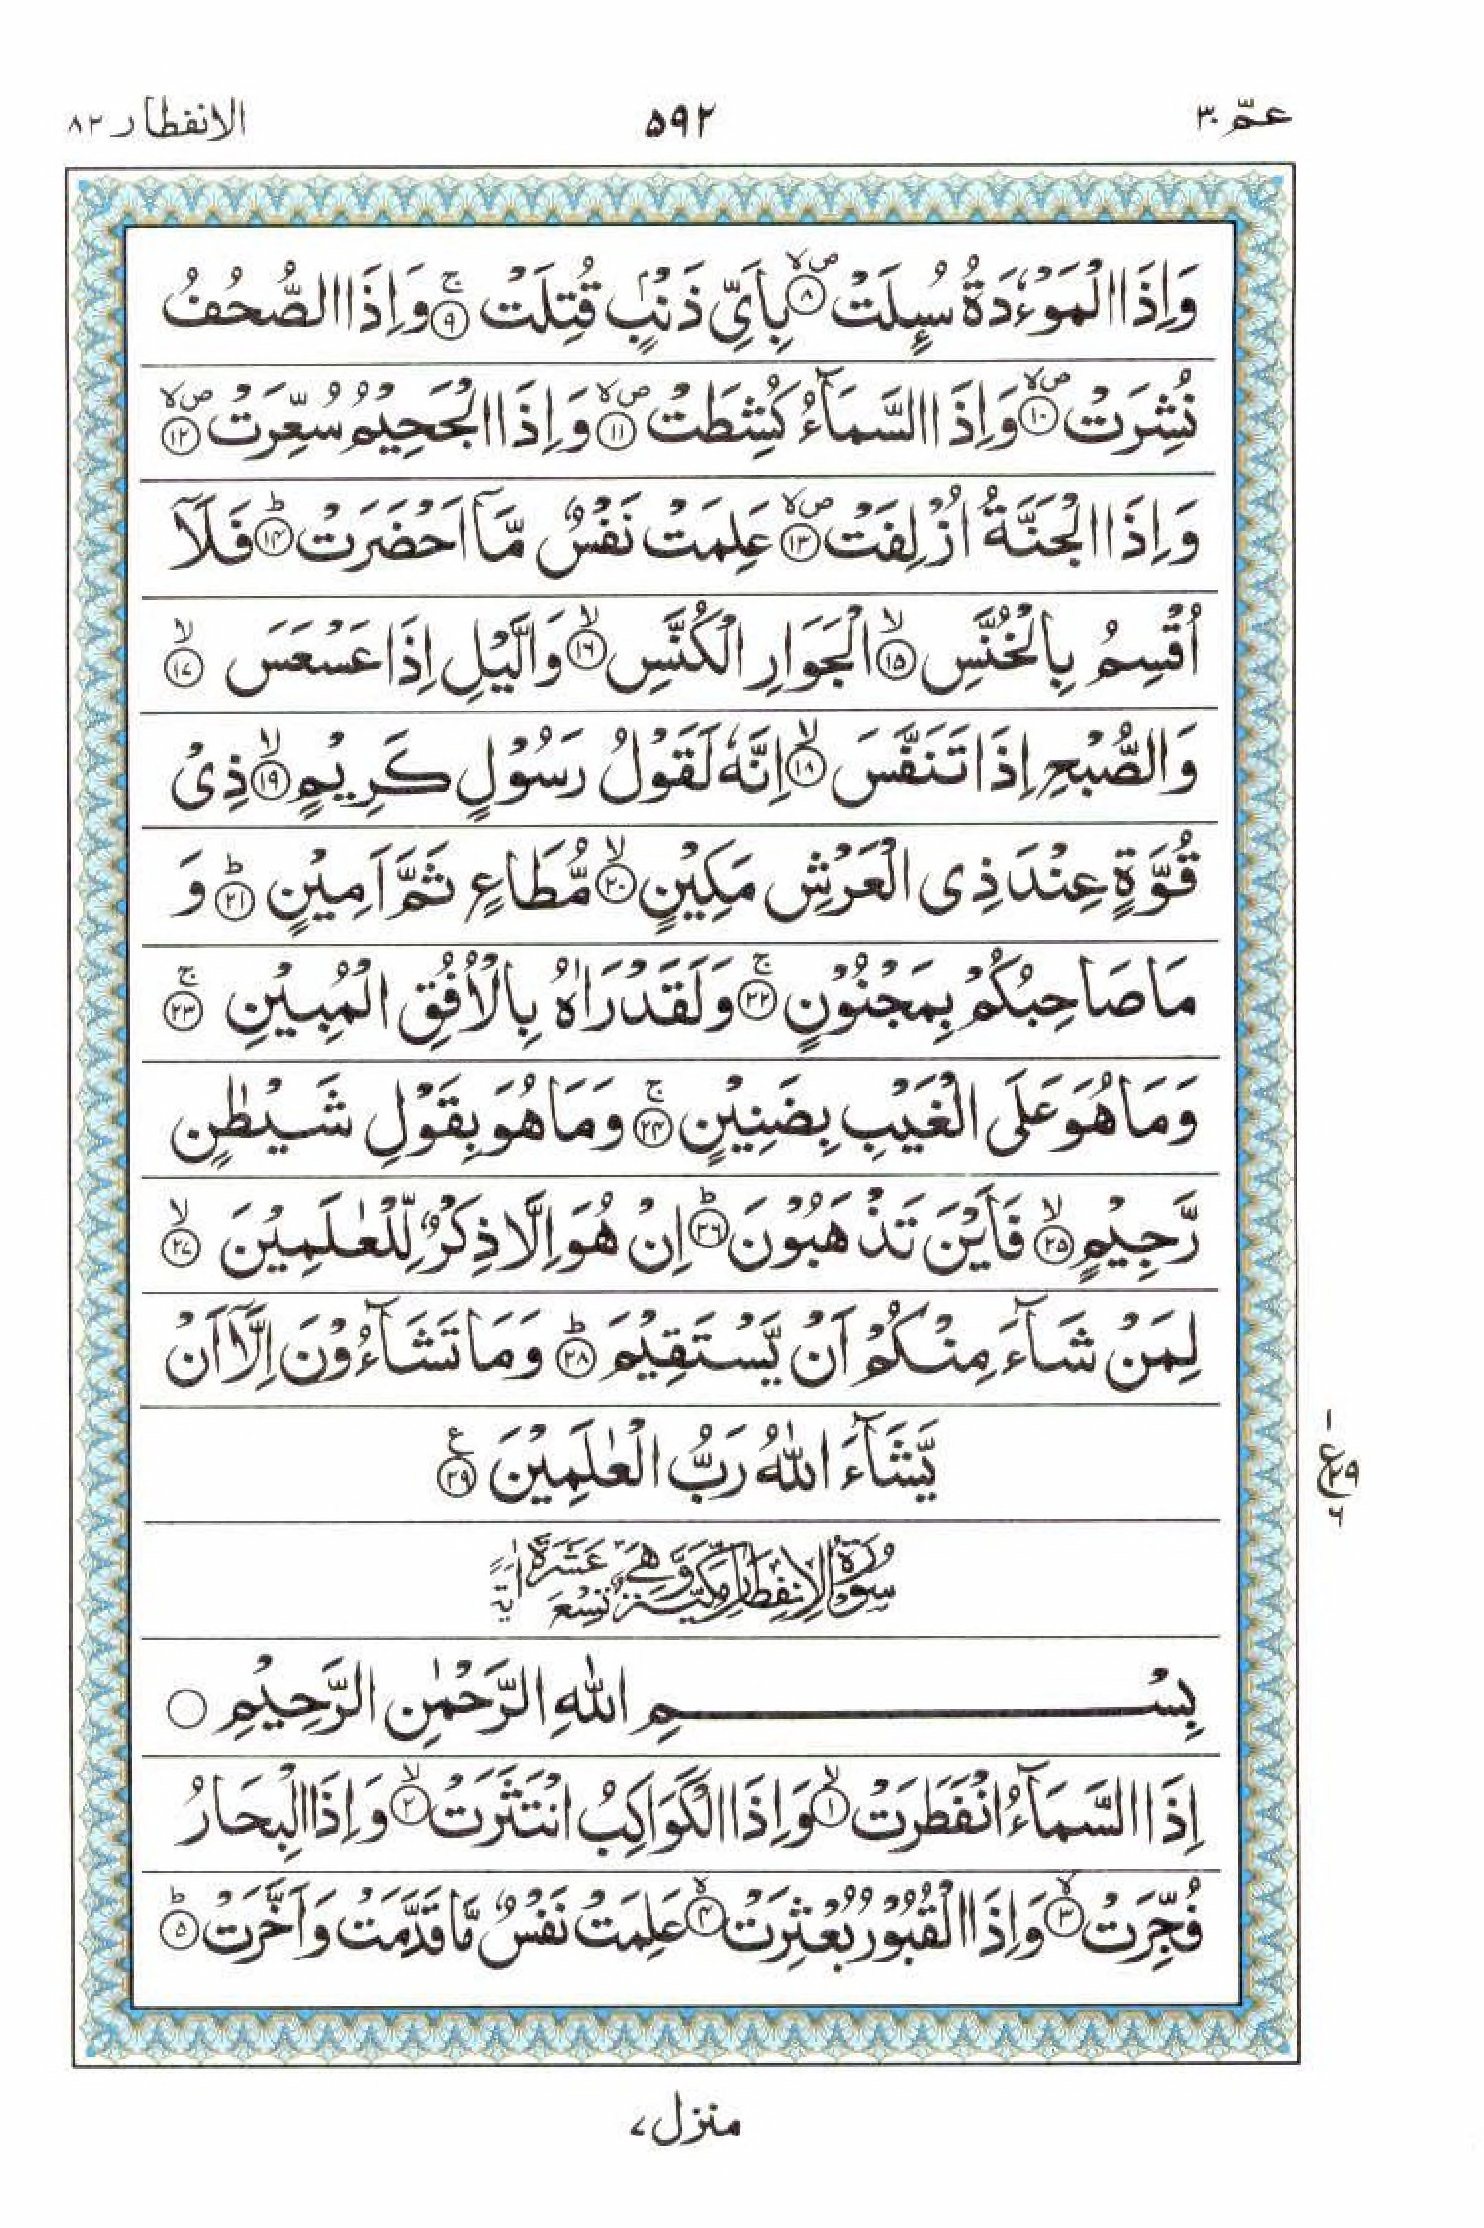 عمّ ۳۰ ۵۹۲ الانفطار ۸۲
وَاِذَا الْمَوْءٗدَةُ سُىِٕلَتْ ۪ۙ‏﴿۸﴾ بِاَىِّ ذَنْۢبٍ قُتِلَتْ‌ۚ‏﴿۹﴾ وَاِذَا الصُّحُفُ
نُشِرَتْ ۪ۙ‏﴿۱۰﴾ وَاِذَا السَّمَآءُ كُشِطَتْ ۪ۙ‏﴿۱۱﴾ وَاِذَا الْجَحِيْمُ سُعِّرَتْ ۪ۙ‏﴿۱۲﴾
وَاِذَا الْجَنَّةُ اُزْلِفَتْ ۪ۙ‏﴿۱۳﴾ عَلِمَتْ نَفْسٌ مَّاۤ اَحْضَرَتْؕ‏﴿۱۴﴾ فَلَاۤ
اُقْسِمُ بِالْخُنَّسِۙ‏﴿۱۵﴾ الْجَوَارِ الْكُنَّسِۙ‏﴿۱۶﴾ وَالَّيْلِ اِذَا عَسْعَسَۙ‏﴿۱۷﴾
وَالصُّبْحِ اِذَا تَنَفَّسَۙ‏﴿۱۸﴾ اِنَّهٗ لَقَوْلُ رَسُوْلٍ كَرِيْمٍۙ‏﴿۱۹﴾ ذِىْ
قُوَّةٍ عِنْدَ ذِى الْعَرْشِ مَكِيْنٍۙ‏﴿۲۰﴾ مُّطَاعٍ ثَمَّ اَمِيْنٍؕ‏﴿۲۱﴾ وَ
مَا صَاحِبُكُمْ بِمَجْنُوْنٍ‌ۚ‏﴿۲۲﴾ وَلَقَدْ رَاٰهُ بِالْاُفُقِ الْمُبِيْنِ‌ۚ‏﴿۲۳﴾
وَمَا هُوَ عَلَى الْغَيْبِ بِضَنِيْنٍ‌ۚ‏﴿۲۴﴾ وَمَا هُوَ بِقَوْلِ شَيْطٰنٍ
رَّجِيْمٍۙ‏﴿۲۵﴾ فَاَيْنَ تَذْهَبُوْنَؕ‏﴿۲۶﴾ اِنْ هُوَ اِلَّا ذِكْرٌ لِّلْعٰلَمِيْنَۙ‏﴿۲۷﴾
لِمَنْ شَآءَ مِنْكُمْ اَنْ يَّسْتَقِيْمَؕ‏﴿۲۸﴾ وَمَا تَشَآءُوْنَ اِلَّاۤ اَنْ
يَّشَآءَ اللّٰهُ رَبُّ الْعٰلَمِيْنَ ع﴿۲۹﴾
۱ ع ۲۹ ۶
سُوْرَةُ الْاِنْفِطَارِ مَكِّيَّةٌ وَّهِيَ تِسْعَ عَشَرَةَ اٰيَةً
بِسْمِ اللّٰهِ الرَّحْمٰنِ الرَّحِيْمِ
اِذَا السَّمَآءُ انْفَطَرَتْۙ‏﴿۱﴾ وَاِذَا الْكَوَاكِبُ انْتَثَرَتْۙ‏﴿۲﴾ وَاِذَا الْبِحَارُ
فُجِّرَتْۙ‏﴿۳﴾ وَاِذَا الْقُبُوْرُ بُعْثِرَتْۙ‏﴿۴﴾ عَلِمَتْ نَفْسٌ مَّا قَدَّمَتْ وَاَخَّرَتْؕ‏﴿۵﴾
منزل ۷